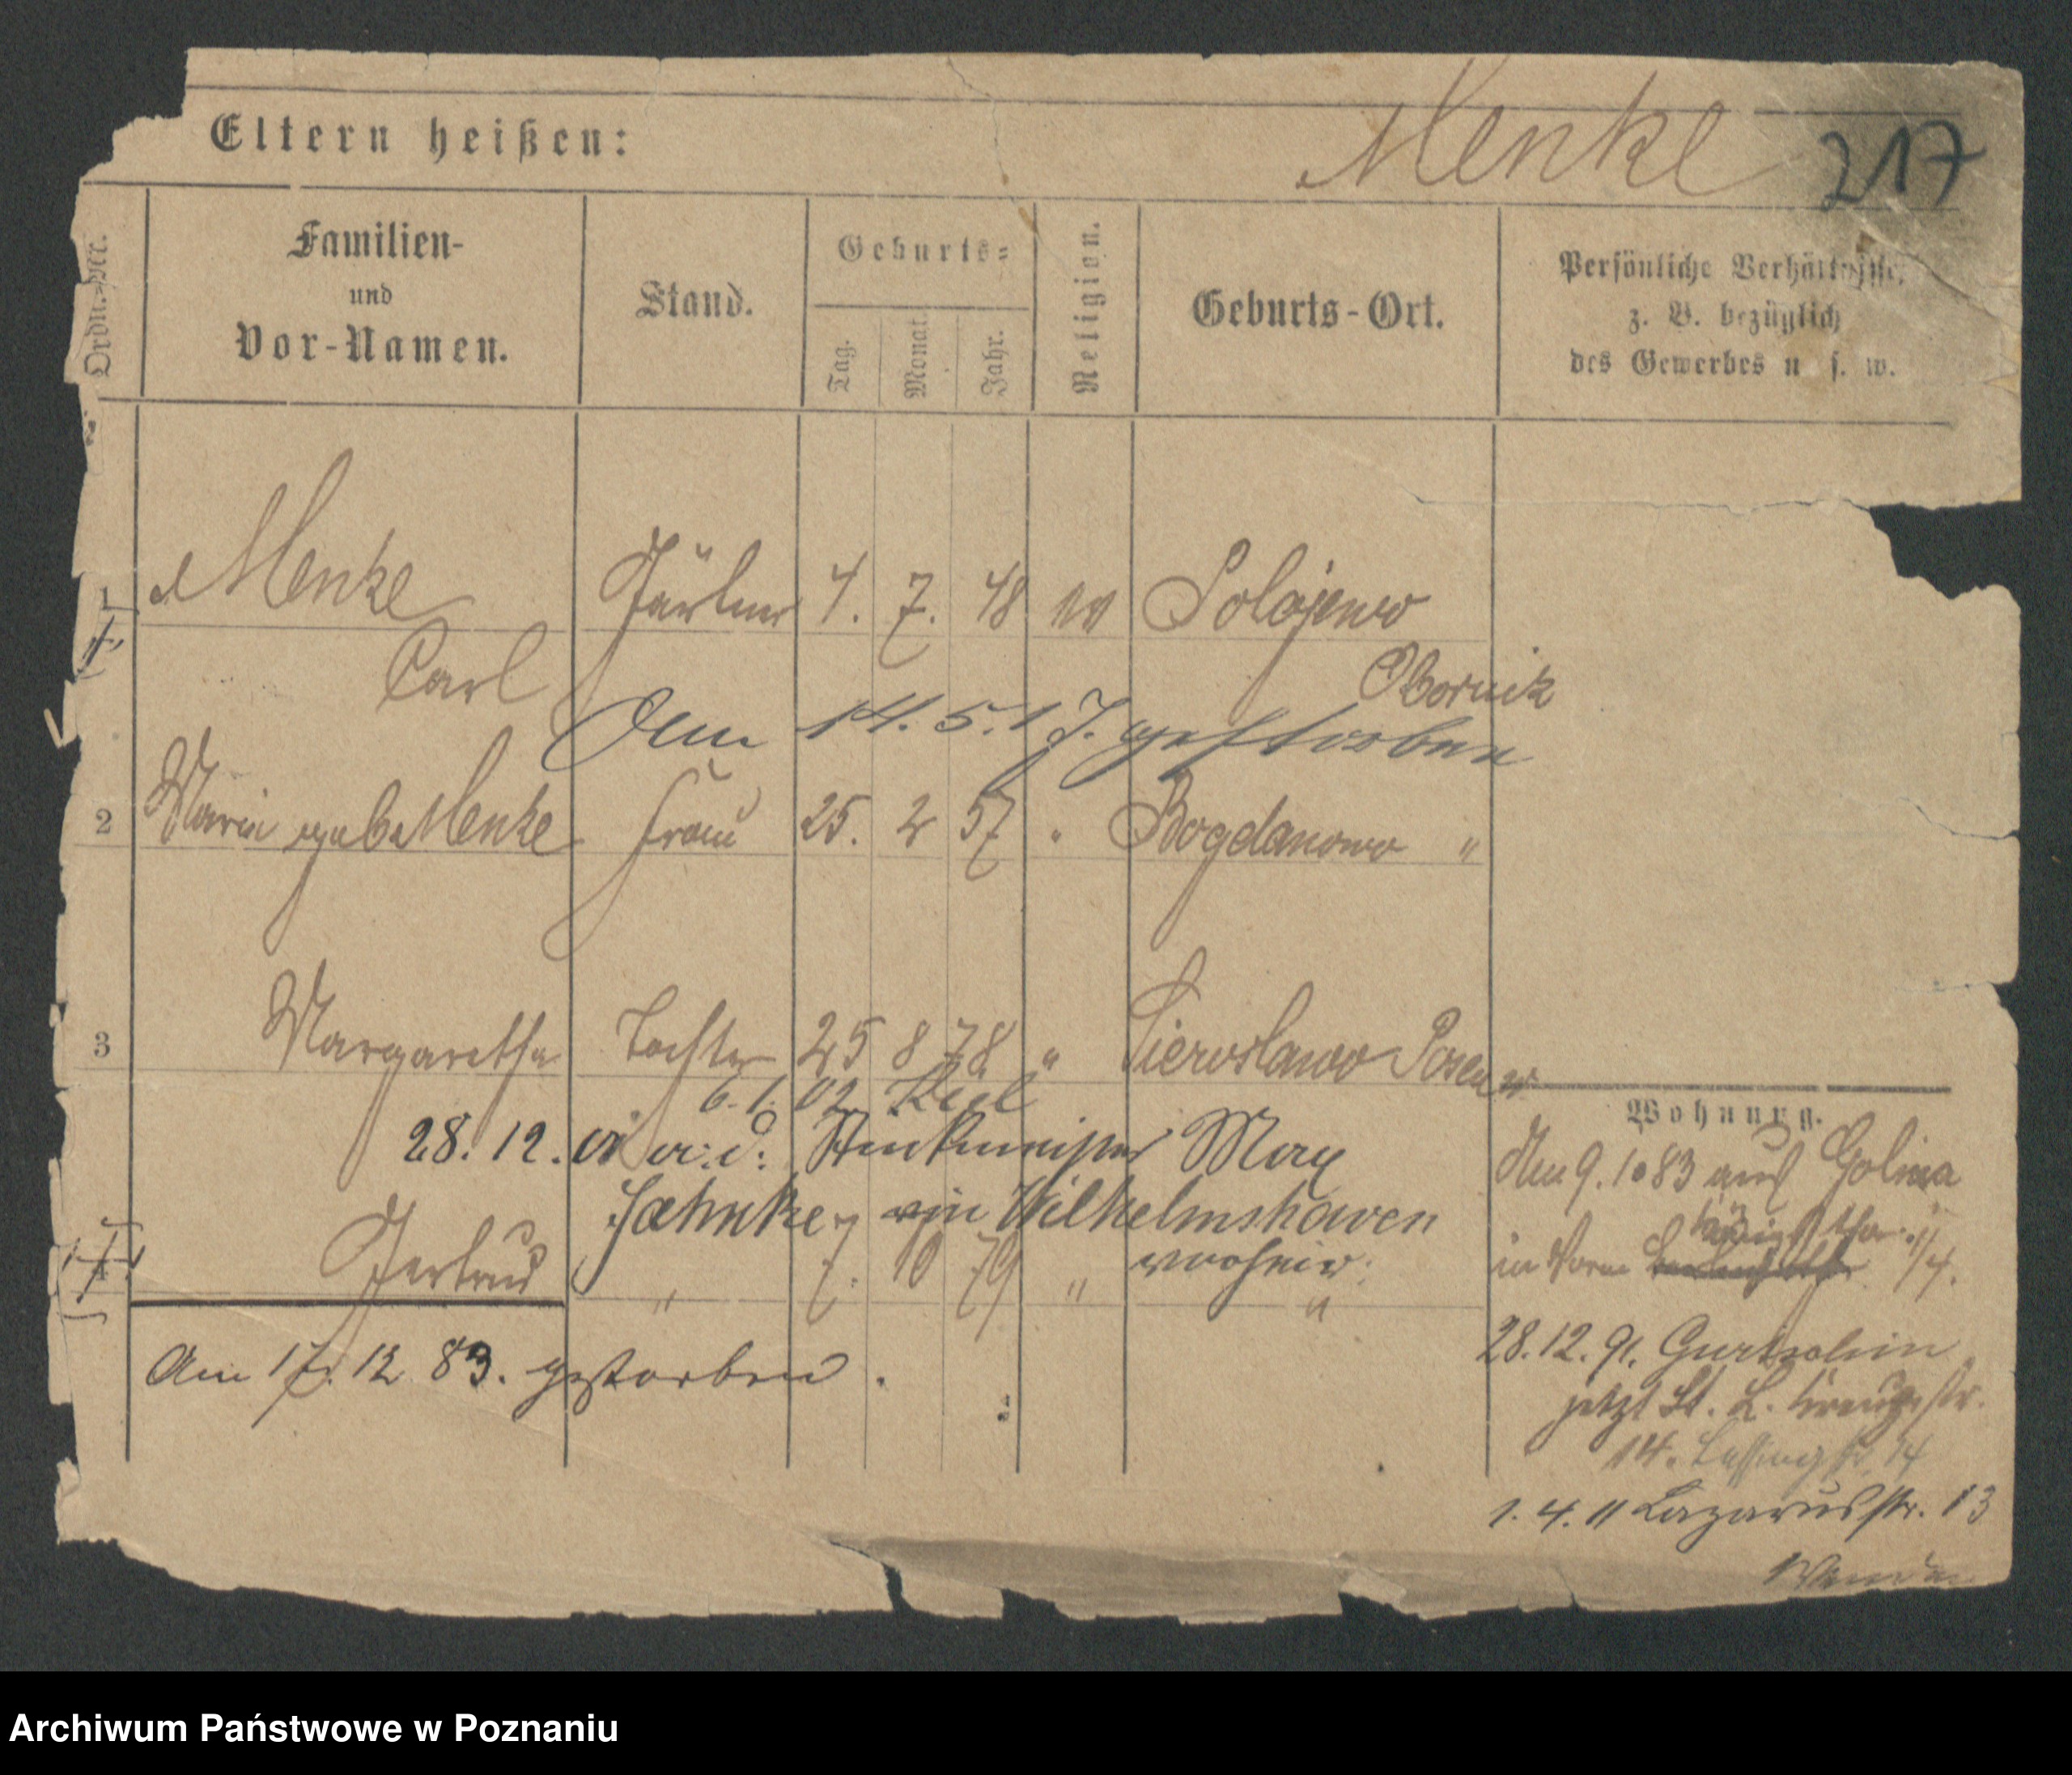 Eltern heißen:
Menke 217
Ordn.-Nr.
Familien-
und
Vor-Namen.
Stand.
Geburts-
Tag.
Monat.
Jahr.
Religion.
Geburts-Ort.
Persönliche Verhältnisse,
z. B. bezüglich
des Gewerbes u. s. w.
1 Menke Gärtner 4. 7. 48 ev Polajewo
Carl Obornik
Am 14. 5. 17. gestorben
2 Marie geb Menke Frau 25. 2 57 " Bogdanowo "
3 Margarethe Tochter 25 8 78 " Sieroslawo Posen W
6. 1. 02 Kiel
28. 12. Max
Jahnke, in Wilhelmshaven
Gertrud " 7. 10 79 " wohnh. "
Am 17. 12 83. gestorben.
Wohnung.
Am 9. 10 83 aus Golina
in 1/4.
28. 12. 91. Gurtschin
jetzt St. L. Kreuzstr.
14. Lessingstr. 14
1. 4. 11 Lazarusstr. 13
Wenden
Archiwum Państwowe w Poznaniu